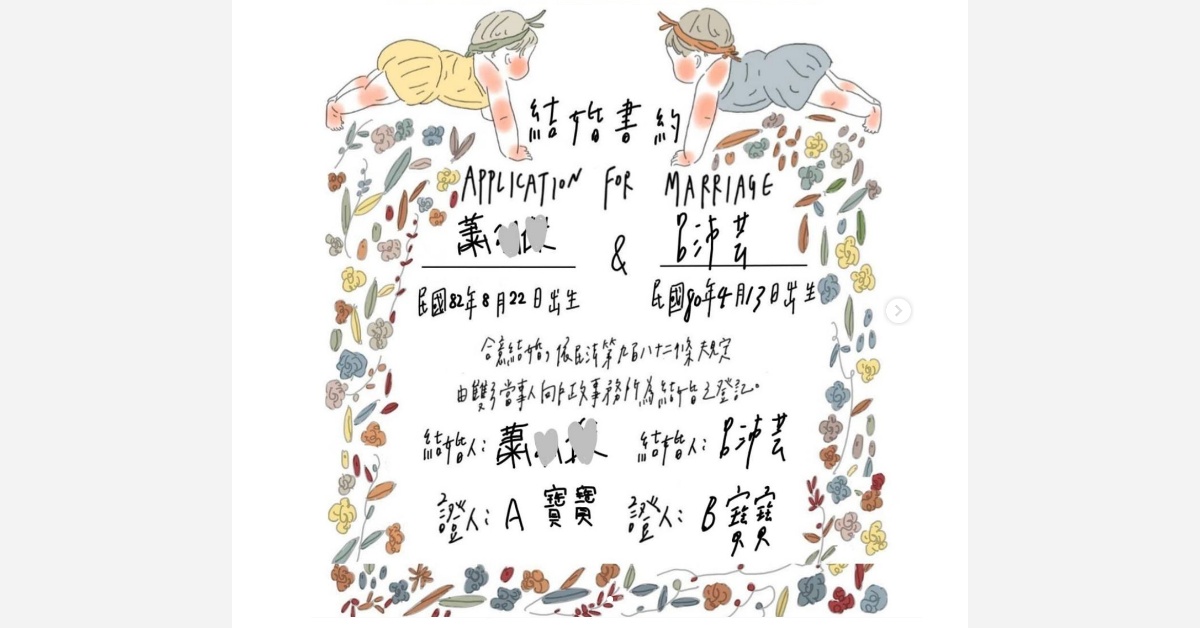 結婚書約
APPLICATION FOR MARRIAGE
蕭 & 呂沛芸
民國82年8月22日出生 民國80年4月13日出生
合意結婚,依民法第九百八十二條規定
由雙方當事人向戶政事務所為結婚之登記。
結婚人:蕭 結婚人:呂沛芸
證人:A寶寶 證人:B寶寶